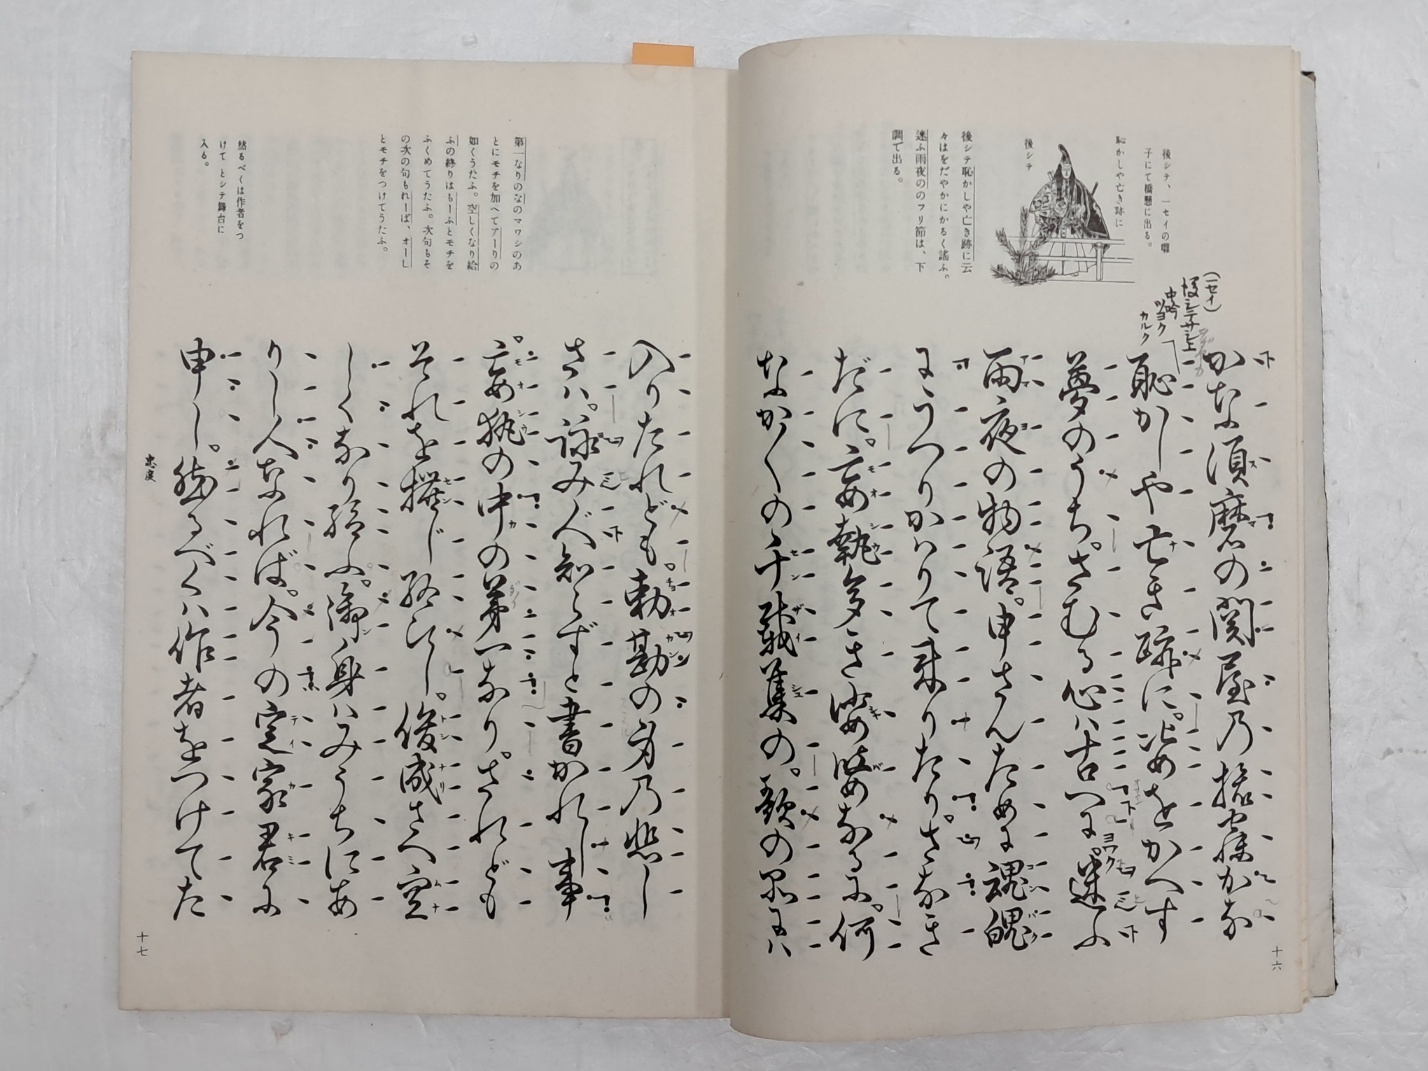 後シテ、一セイの囃
子にて橋懸に出る。
恥かしや亡き跡に
後シテ
後シテ恥かしや亡き跡に云
々はをだやかにかるく謡ふ。
迷ふ雨夜ののフリ節は、下
調で出る。
(一セイ)
後シテサシ上
中吟
ツヨク
カルク
かな須磨の関屋乃旅寝かな
恥かしや亡き跡に。姿をかへす
夢のうち。さむる心は古へに。迷ふ
雨夜の物語。申さんために魂魄
にうつりかはりて来りたり。さなき
だに。妄執多き娑婆なるに。何
なか〱の千載集の。歌の品には
十六
第一なりのなのマワシのあ
とにモチを加へてアーりの
如くうたふ。空しくなり給
ふの終りはもーふとモチを
ふくめてうたふ。次句もそ
の次の句もれーば、オーし
とモチをつけてうたふ。
然るべくは作者をつ
けて とシテ舞台に
入る。
入りたれども。勅勘の身乃悲し
さは。詠み人知らずと書かれし事
妄執の中の第一なり。されども
それを撰じ給ひし。俊成さへ空
しくなり給ふ。御身はみうちにあ
りし人なれば。今の定家君に
申し。然るべくは作者をつけてた
忠度
十七